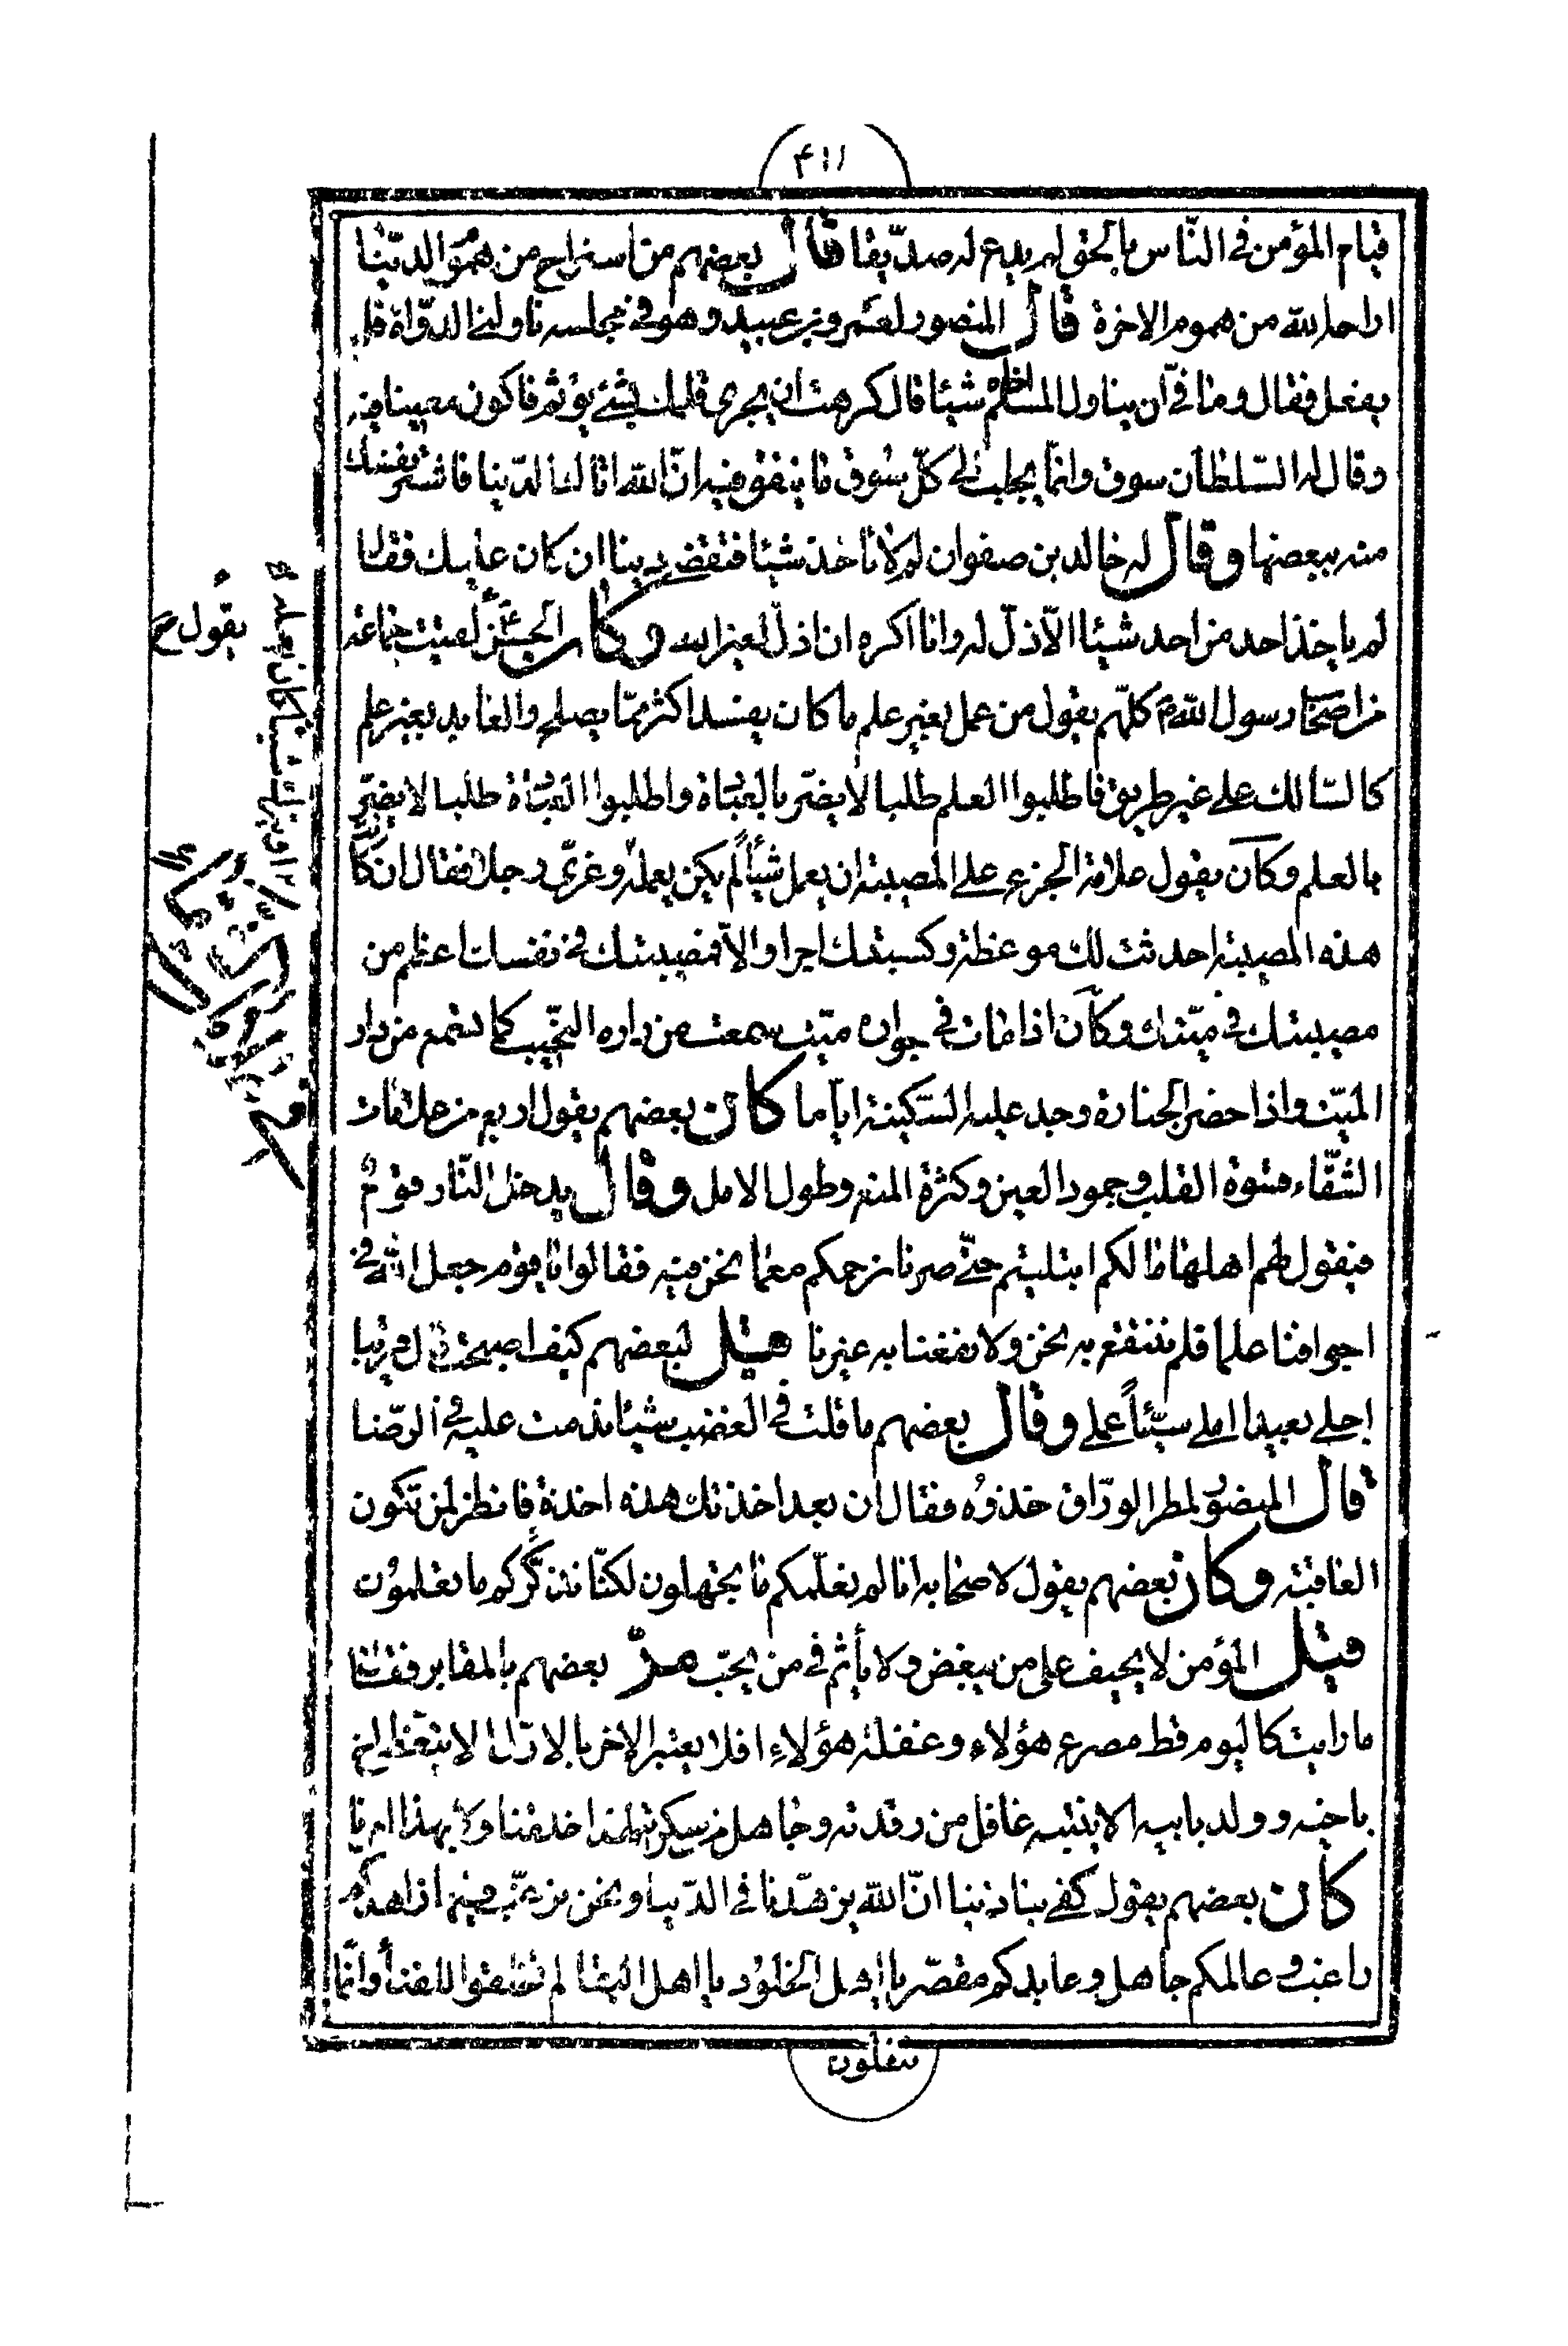 ۴۱۱
قيام المؤمن في النّاس بالحق لم يدع له صدّيقا قال بعضهم من استراح من هموم الدّنيا
اراحه الله من هموم الاخرة قال المنصور لعمرو بن عبيد وهو في مجلسه ناولني الدّواة فلم
يفعل فقال وما في ان يناول المسلم اخاه شيئا قال كرهت ان يجري قلمك بشئ يؤثم فاكون معينا فيه
وقال له السّلطان سوق وانّما يجلب الى كلّ سوق ما ينفق فيه انّ الله اتاك الدّنيا فاشتر نفسك
منه ببعضها وقال له خالد بن صفوان لم لا تاخذ شيئا فتقضي دينا ان كان عليك فقال
لم ياخذ احد من احد شيئا الّا ذلّ له وانا اكره ان اذلّ لغير الله وكان الحسن لقيت جماعة
من اصحاب رسول الله ص كلّهم يقول من عمل بغير علم ما كان يفسد اكثر ممّا يصلح والعابد بغير علم
كالسّالك على غير طريق فاطلبوا العلم طلبا لا يضرّ بالعبادة واطلبوا العبادة طلبا لا يضرّ
بالعلم وكان يقول علامة الجزع على المصيبة ان يعمل شيئا لم يكن يعمله وعزّى رجلا فقال ان كانت
هذه المصيبة احدثت لك موعظة وكسبتك اجرا والّا فمصيبتك في نفسك اعظم من
مصيبتك في ميّتك وكان اذا مات في جواره ميّت سمعت من داره النّحيب كما تسمع من دار
الميّت واذا حضر الجنازة وجد عليه السّكينة ايّاما كان بعضهم يقول اربع من علامات
الشّقاء قسوة القلب وجمود العين وكثرة المنى وطول الامل وقال يدخل النّار قوم
فيقول لهم اهلها ما لكم ابتليتم حتّى صرنا نرحمكم مع ما نحن فيه فقالوا يا قوم جعل الله في
اجوافنا علما فلم ننتفع به نحن ولا نفعنا به غيرنا قيل لبعضهم كيف اصبحت قال قريبا
اجلي بعيدا املي سيّئاً عملي وقال بعضهم ما قلت في الغضب شيئا ندمت عليه في الرضا
قال المنصور لمطر الورّاق خذوه فقال ان بعد اخذتك هذه اخذة فانظر لمن تكون
العاقبة وكان بعضهم يقول لاصحابه انا لم نعلّمكم ما تجهلون لكنّا نذكّركم ما تعلمون
قيل المؤمن لا يحيف على من يبغض ولا يأثم في من يحبّ مرّ بعضهم بالمقابر فقال
ما رايت كاليوم قط مصرع هؤلاء وغفلة هؤلاء افلا يعتبر الاخر بالاوّل الا يتّعظ اخ
باخيه و ولد بابيه الا ينتبه غافل من رقدته وجاهل من سكرته الهذا خلقنا ولا بهذا امرنا
كان بعضهم يقول كفى بنا ذنبا انّ الله يزهّدنا في الدّنيا ونحن نرغب فيها زاهدكم
راغب و عالمكم جاهل وعابدكم مقصّر يا اهل الخلود يا اهل البقا لم تخلقوا للفناء وانّما
تنقلون
يقول